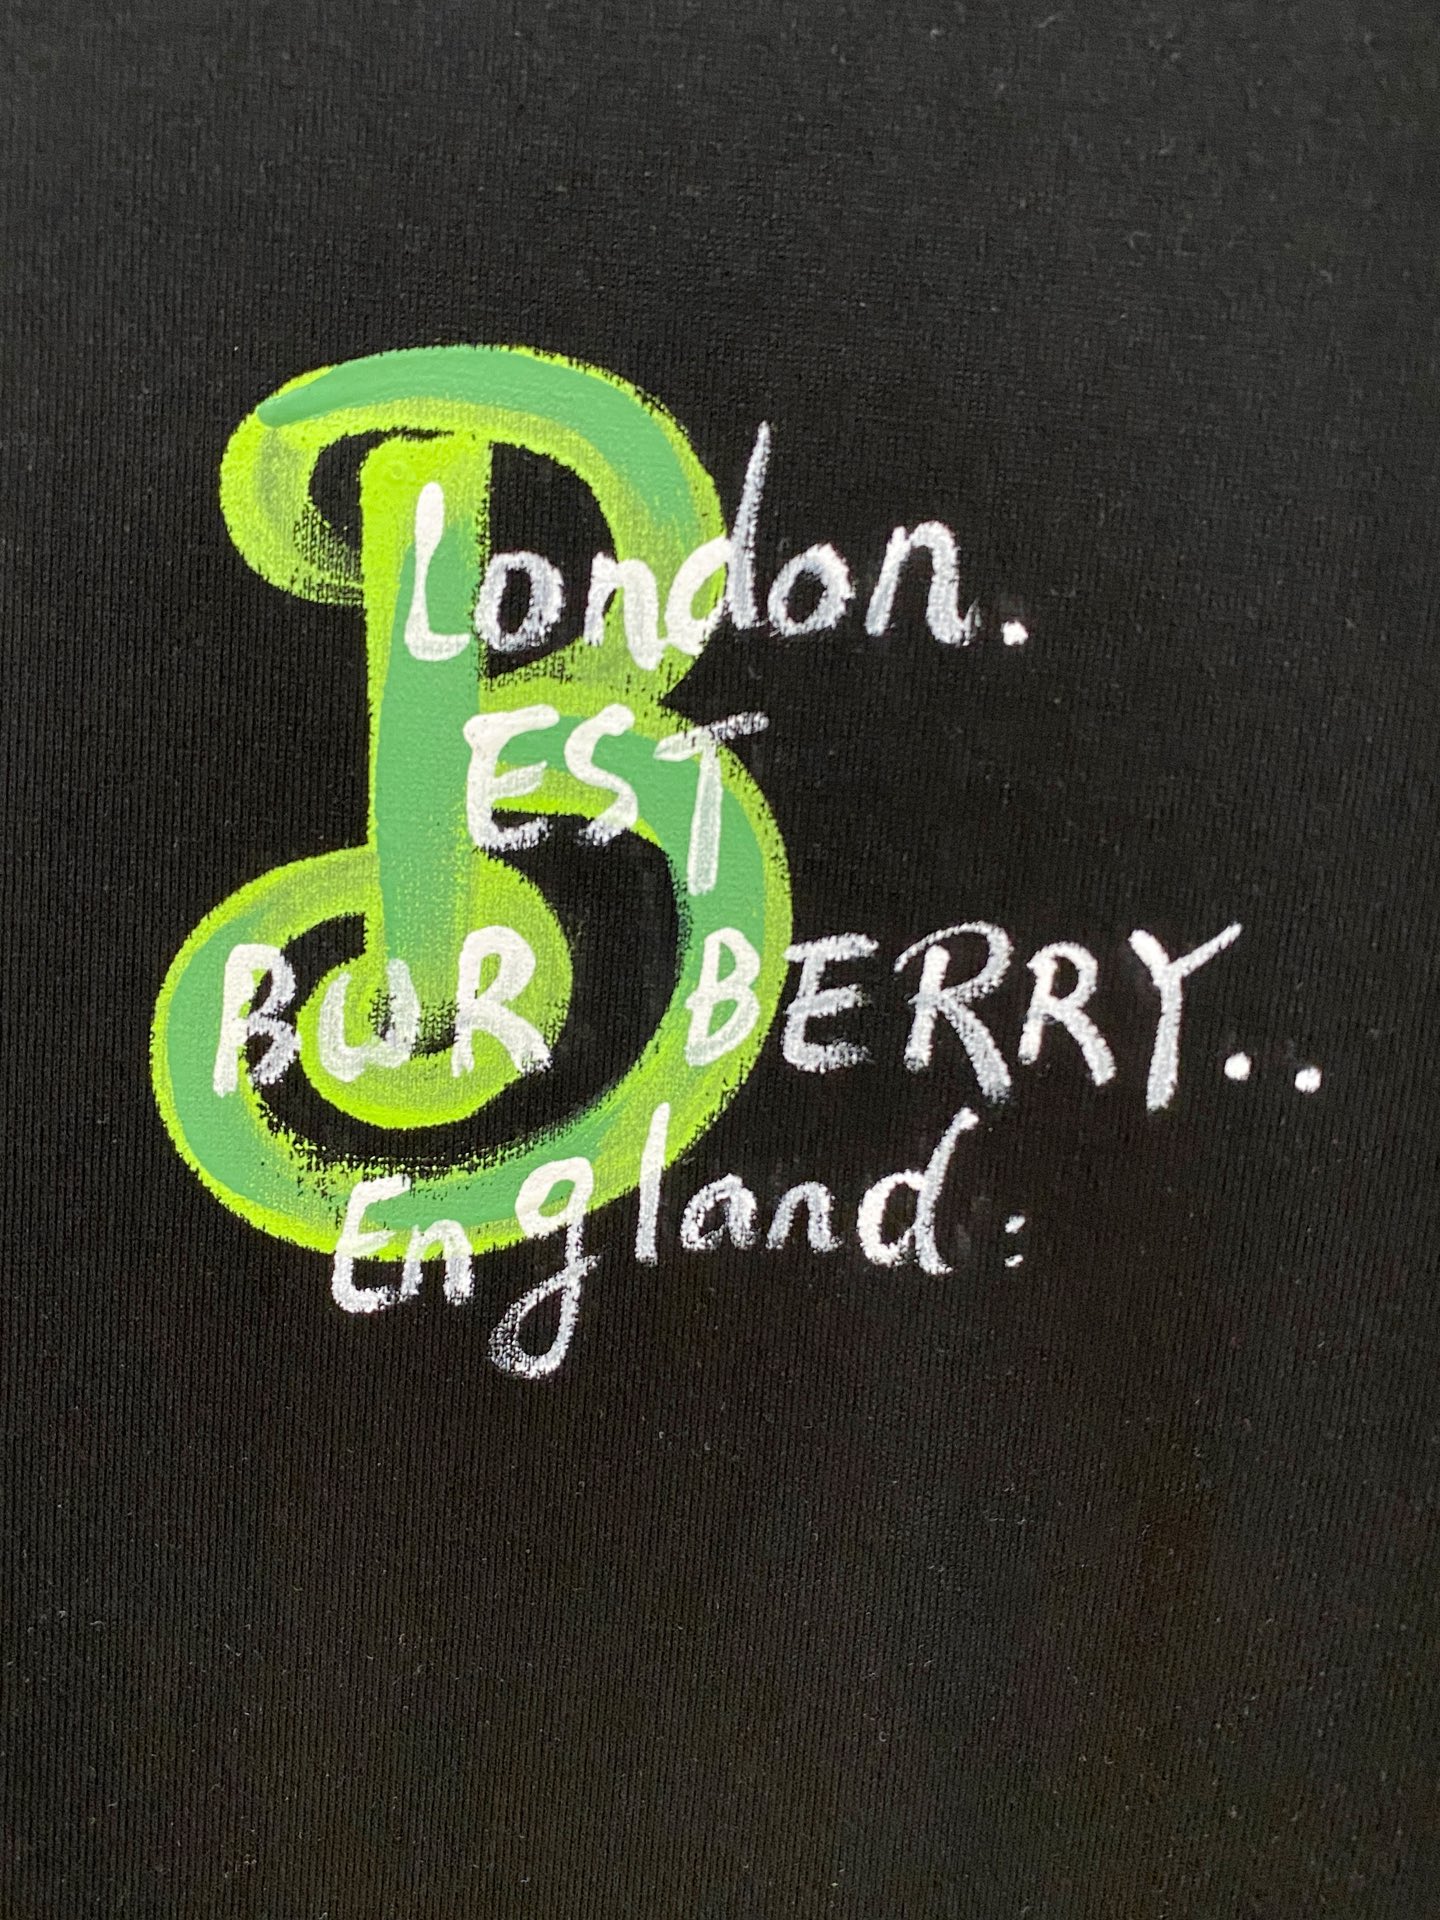 B
London.
EST
BURBERRY..
England: